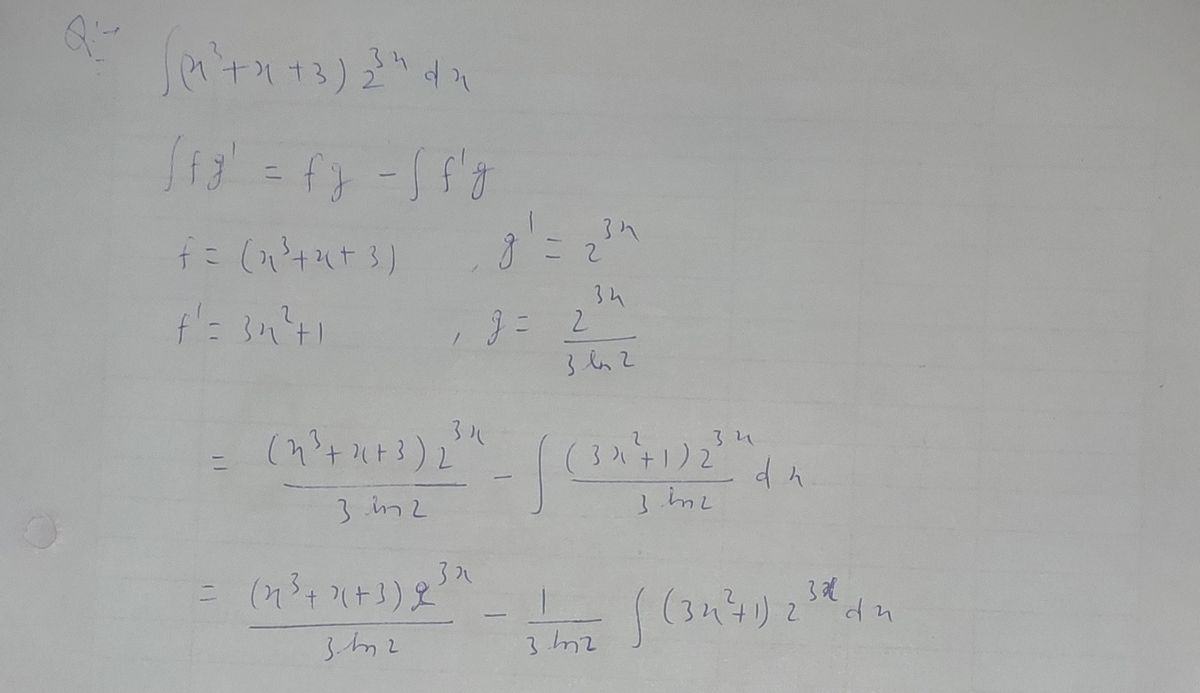 Q:→ ∫(x³+x+3) 2^{3x} dx
∫fg' = fg - ∫f'g
f = (x³+x+3) , g' = 2^{3x}
f' = 3x²+1 , g = \frac{2^{3x}}{3 ln 2}
= \frac{(x³+x+3) 2^{3x}}{3 ln 2} - ∫ \frac{(3x²+1) 2^{3x}}{3 ln 2} dx
= \frac{(x³+x+3) 2^{3x}}{3 ln 2} - \frac{1}{3 ln 2} ∫ (3x²+1) 2^{3x} dx